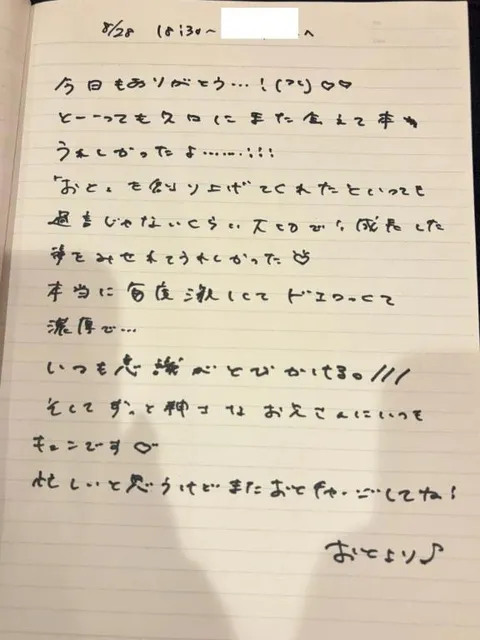 8/28 18:30~ へ
今日もありがとう…!(つc)♡♡
とーーっても久々にまた会えて本当
うれしかったよ……!!!
「おと」を創り上げてくれたといっても
過言じゃないくらい大切で、成長した
姿をみせれてうれしかった♡
本当に毎度激しくて ドエロくて
濃厚で…
いつも意識がとびかける。///
そしてずっと紳士なお兄さんにいつも
キュンです♡
忙しいと思うけどまたおとチャージしてね!
おとより♪